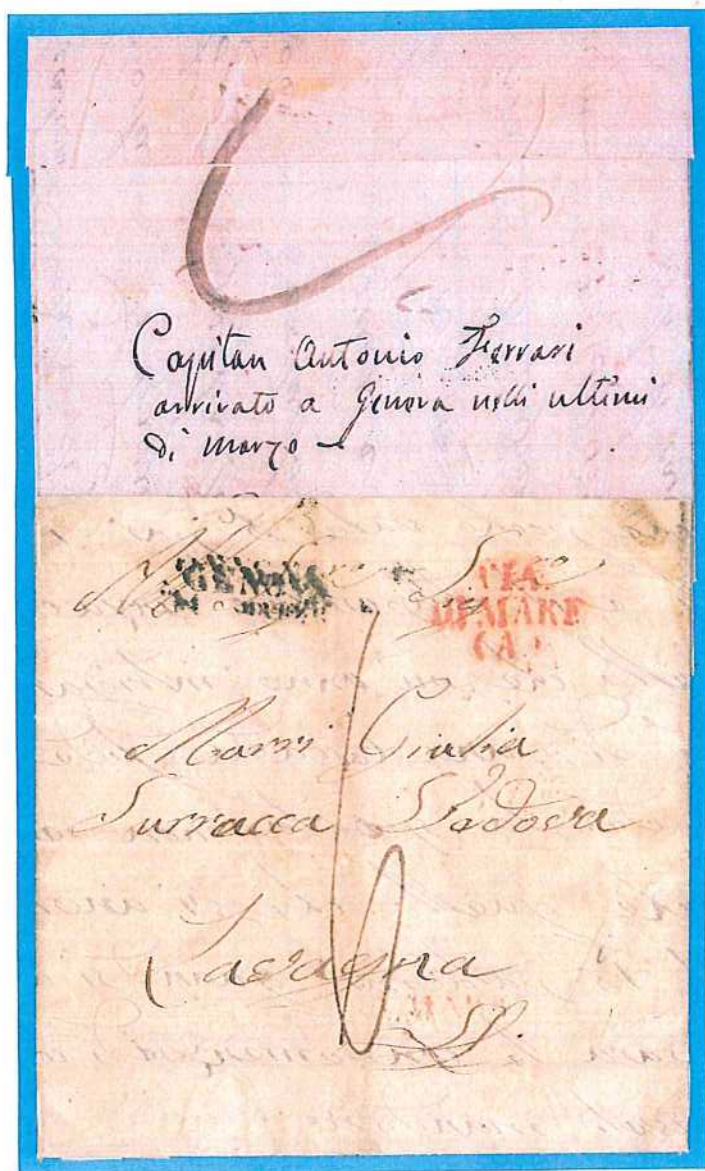 Capitan Antonio Ferrari
arrivato a Genova nelli ultimi
di marzo
GENOVA
VIA
DI MARE
(A)
Giulia
Surracca Vedova
Lavagna
6